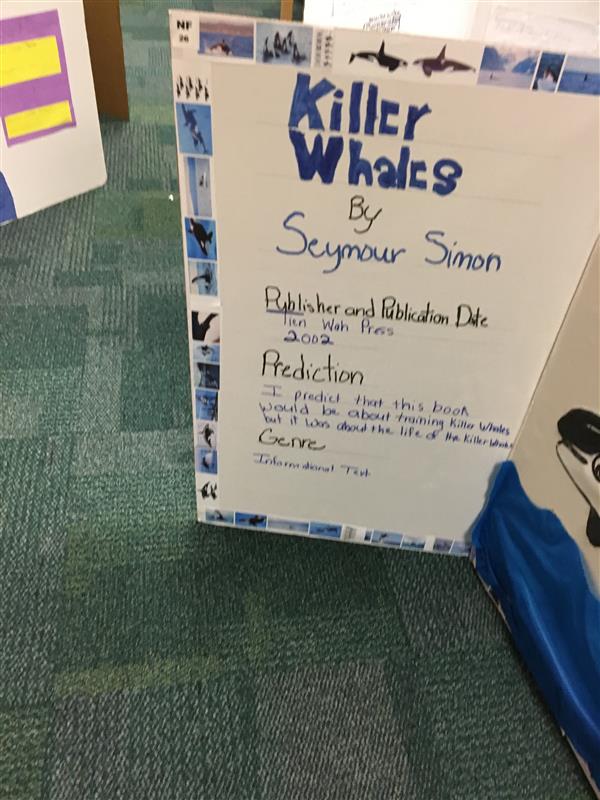 NF
26
Killer
Whales
By
Seymour Simon
Publisher and Publication Date
Tien Wah Press
2002
Prediction
I predict that this book
would be about training Killer Whales
but it was about the life of the Killer Whale
Genre
Informational Text